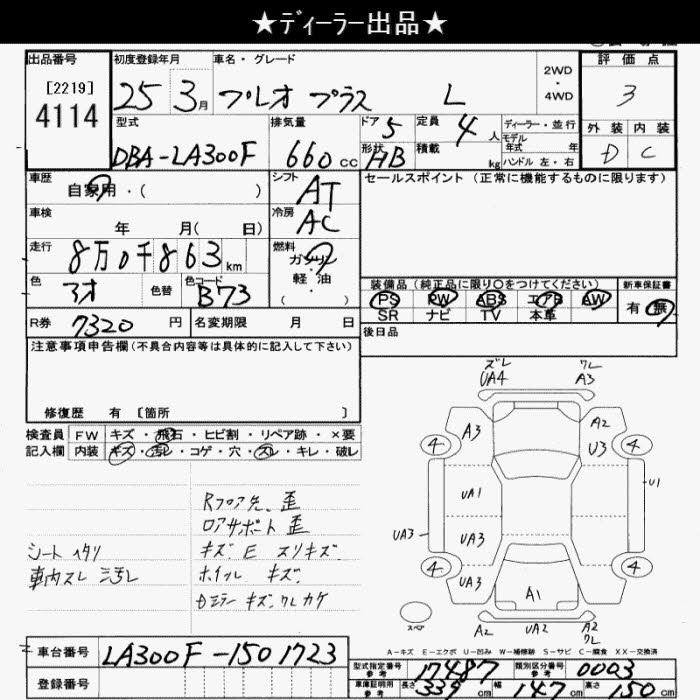 ★ディーラー出品★
出品番号 [2219] 4114
初度登録年月 25 3月
車名・グレード プレオ プラス L
2WD・4WD
評価点 3
型式 DBA-LA300F
排気量 660cc
ドア 5
形状 HB
定員 4人
積載 kg
ディーラー・並行
モデル年式 年
ハンドル 左・右
外装 D
内装 C
車歴 自家用・( )
シフト AT
セールスポイント (正常に機能するものに限ります)
車検 年 月( 日)
冷房 AC
走行 8万0千863km
燃料 ガソリン・軽油・( )
色 アオ
色替
色コード B73
装備品(純正品に限り〇をつけてください)
PS PW ABS エアB AW
SR ナビ TV 本革
新車保証書 有 無
R券 7320円
名変期限 月 日
後日品
注意事項申告欄(不具合内容等は具体的に記入して下さい)
修復歴 有 [箇所 ]
検査員記入欄
FW キズ・飛石・ヒビ割・リペア跡・×要
内装 キズ・汚レ・コゲ・穴・スレ・キレ・破レ
Rフロア先 歪
ロアサポート 歪
シート ヘタリ
キズ E スリキズ
車内スレ 汚レ
ホイル キズ
Dミラー キズ ワレ カケ
ズレ UA4
ワレ A3
A3
A2
U3
4
4
UA1
U1
UA3
UA3
4
4
UA3
A1
スペア
A2
UA2
A2 ワレ
A-キズ E-エクボ U-凹み W-補修跡 S-サビ C-腐食 XX-交換済
車台番号 LA300F-1501723
登録番号
型式指定番号 参考 17487
類別区分番号 参考 0003
車庫証明用 参考 長さ 339cm 幅 147cm 高さ 150cm